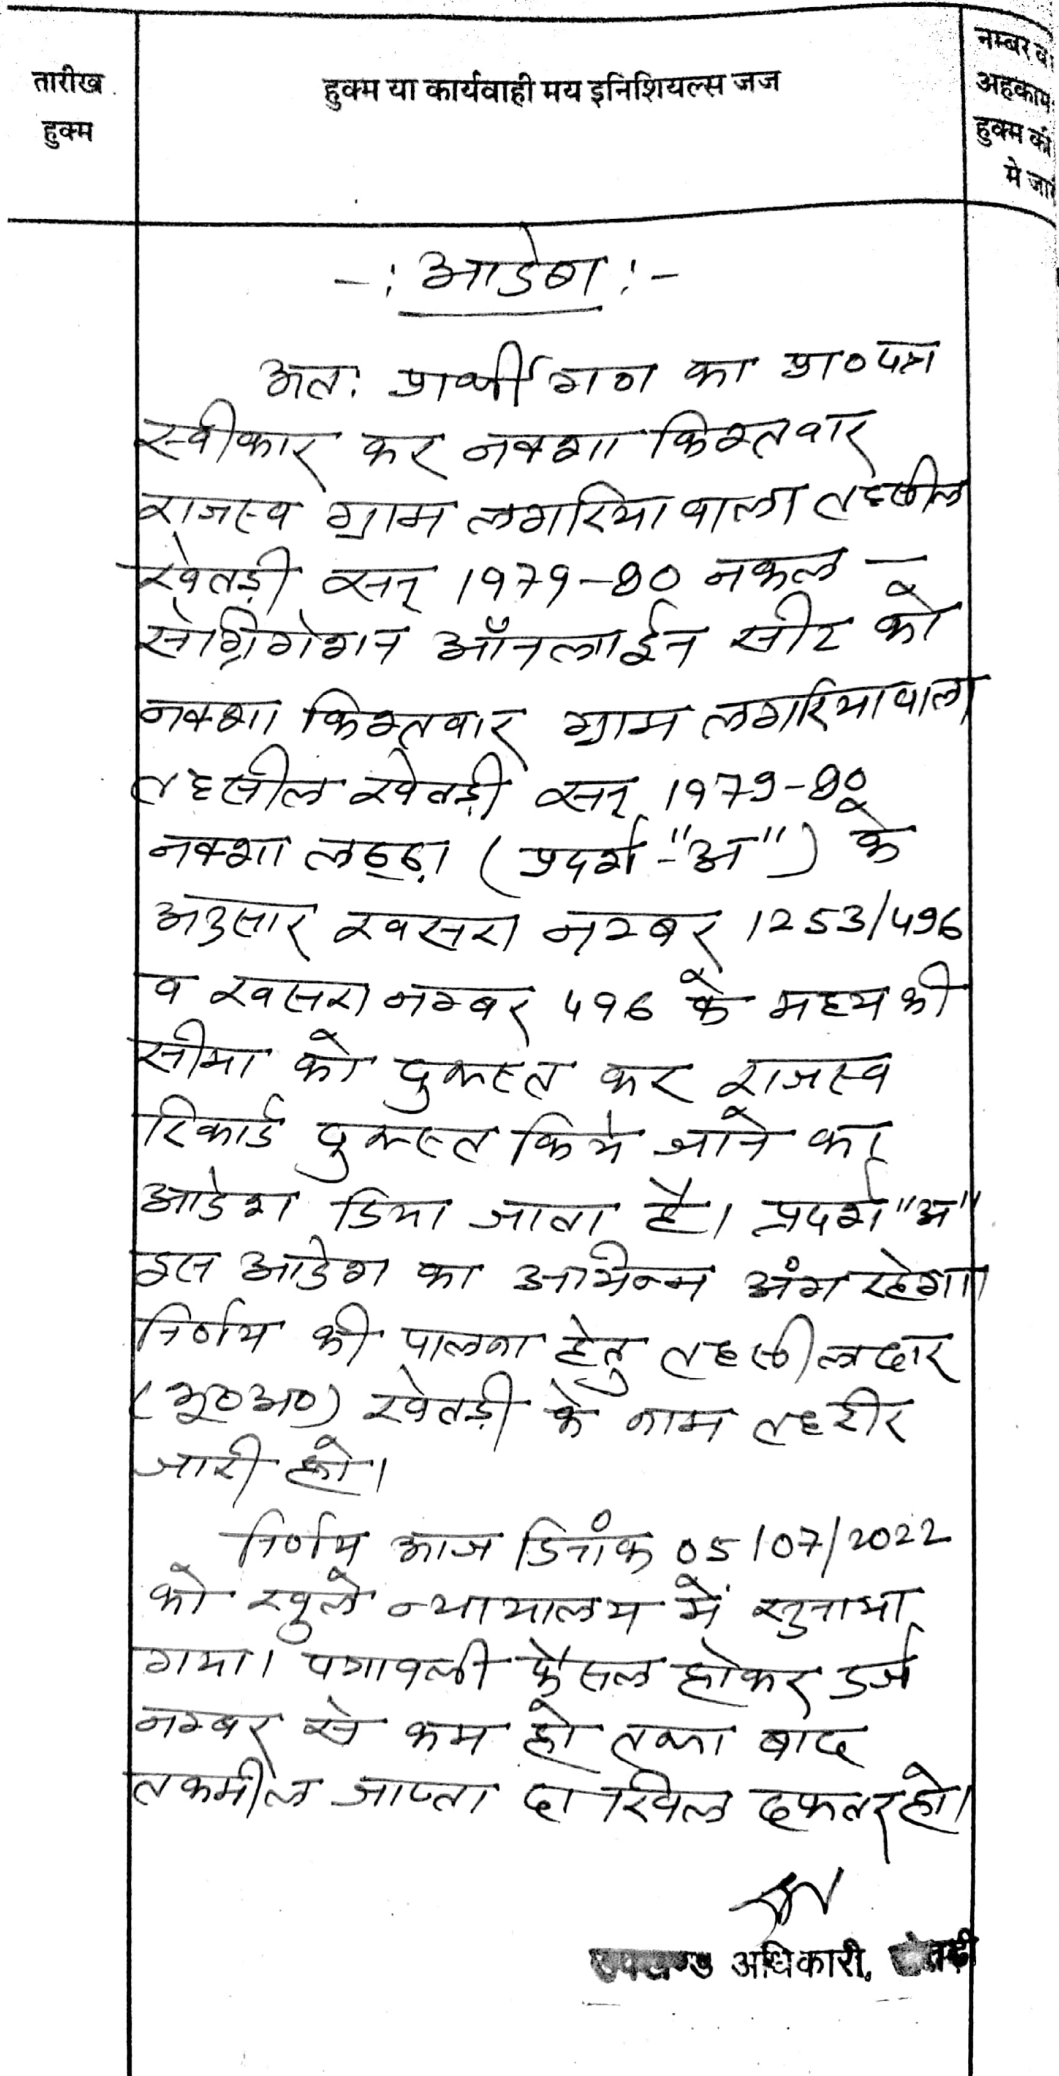 तारीख
हुक्म
हुक्म या कार्यवाही मय इनिशियल्स जज
नम्बर व
अहकाम
हुक्म की
मे जा
-: आदेश :-
अतः प्रार्थी गण का प्रा० पत्र
स्वीकार कर नक्शा किश्तवार
राजस्व ग्राम लगरियावाला तहसील
खेतड़ी सन् 1979-80 नकल -
सेग्रिगेशन ऑनलाईन सीट को
नक्शा किश्तवार ग्राम लगरियावाला
तहसील खेतड़ी सन् 1979-80
नक्शा लठ्ठा (प्रदर्श -"अ") के
अनुसार खसरा नम्बर 1253/496
व खसरा नम्बर 496 के मध्य की
सीमा को दुरूस्त कर राजस्व
रिकार्ड दुरूस्त किये जाने का
आदेश दिया जाता है। प्रदर्श "अ"
इस आदेश का अभिन्न अंग रहेगा।
निर्णय की पालना हेतु तहसीलदार
(भू०अ०) खेतड़ी के नाम तहरीर
जारी हो।
निर्णय आज दिनांक 05/07/2022
को खुले न्यायालय में सुनाया
गया। पत्रावली फैसल होकर दर्ज
नम्बर से कम हो तथा बाद
तकमील जाप्ता दाखिल दफ्तर हो।
उपखण्ड अधिकारी, खेतड़ी